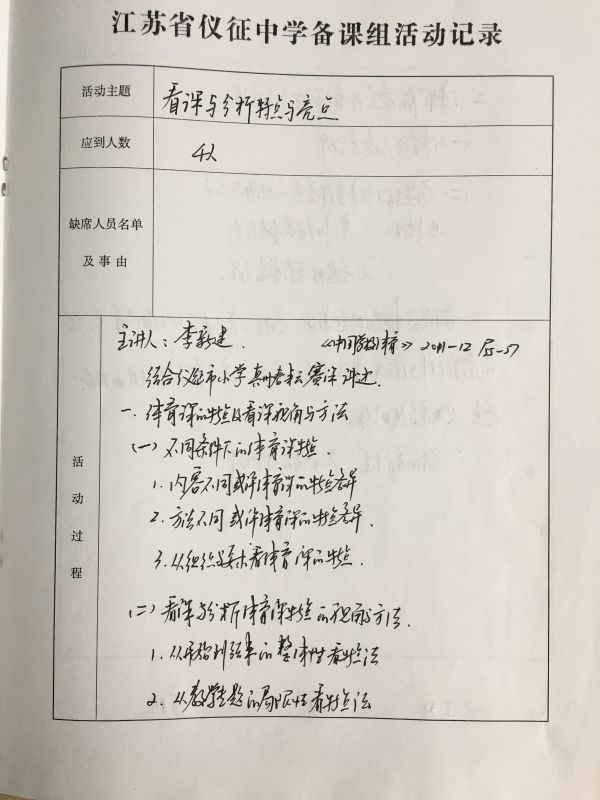 江苏省仪征中学备课组活动记录
活动主题
看课与分析特点与亮点
应到人数
4人
缺席人员名单
及事由
活动过程
主讲人：李新建. 《中国学校体育》2011-12
结合 市小学 赛课讲述.
一、体育课的特点及看课视角与方法
(一) 不同条件下的体育课特点.
1. 内容不同或许体育课的特点各异
2. 方法不同或许体育课的特点各异.
3. 从组织 要求看体育课的特点.
(二) 看课与分析体育课特点的视角或方法.
1. 从开始到结束的整体性看特点法
2. 从教学 的局限性看特点法